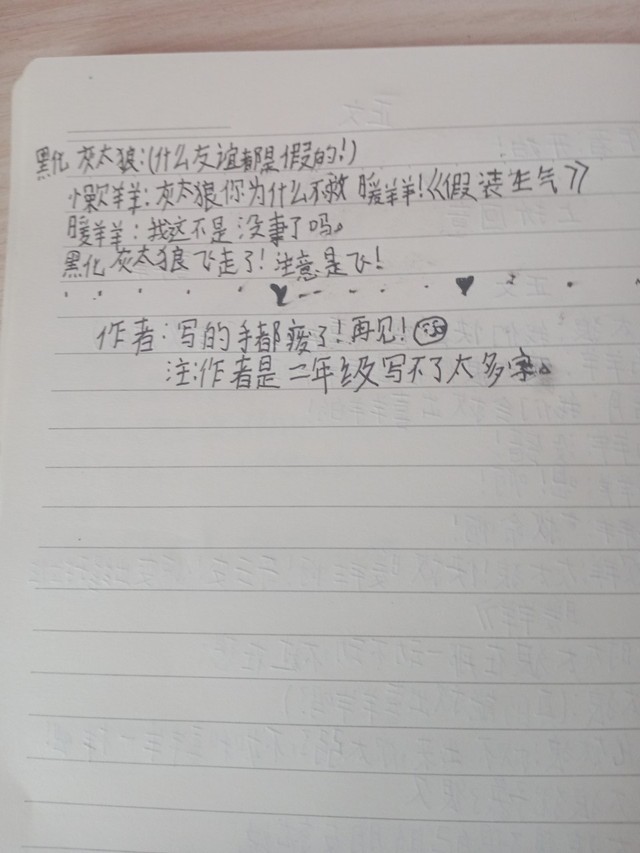 黑化灰太狼:(什么友谊都是假的!)
懒羊羊:灰太狼你为什么不救暖羊羊!《假装生气》
暖羊羊:我这不是没事了吗。
黑化灰太狼飞走了!注意是飞!
作者:写的手都酸了!再见!
注:作者是二年级写不了太多字。